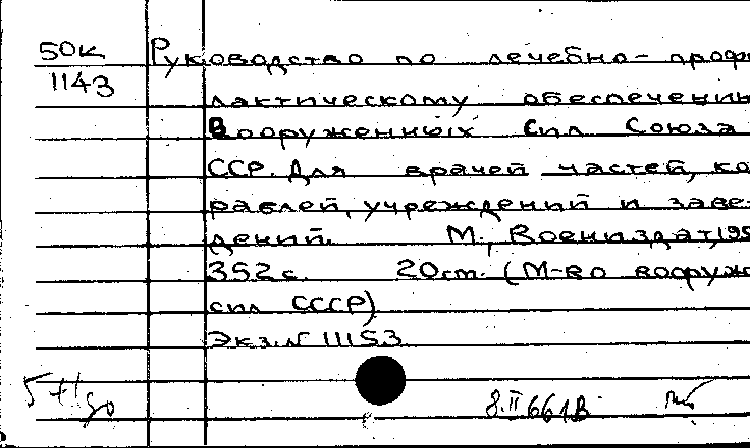 50К Руководство по лечебно-профи
1143
лактическому обеспечени
Вооруженных Сил Союза
ССР. Для врачей частей, ко
раблей, учреждений и заве-
дений. М., Воениздат, 195
352 с. 20 см. (М-во вооруж
сил СССР)
Экз. N 11153
8.II 66